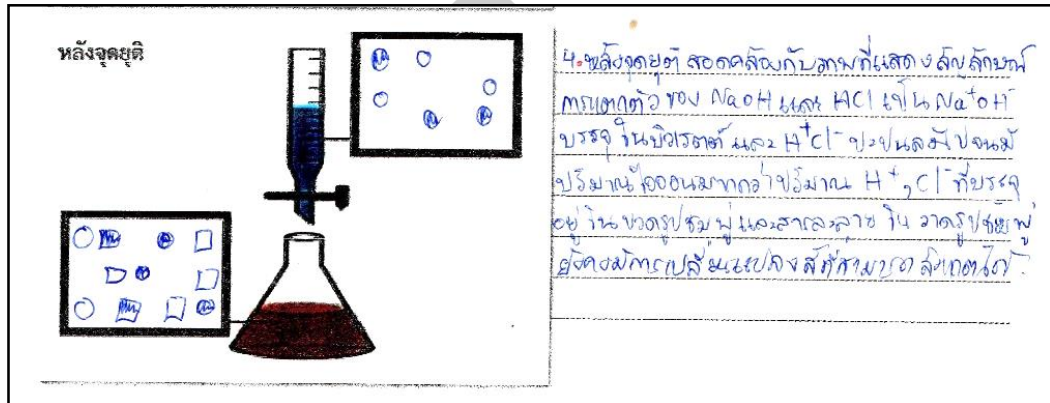 หลังจุดยุติ
4. หลังจุดยุติ สอดคล้องกับภาพที่แสดงสัญลักษณ์
การแตกตัวของ NaOH และ HCl เป็น Na⁺OH⁻
บรรจุในบิวเรตต์ และ H⁺Cl⁻ ปะปนลงไปจนมี
ปริมาณไอออนมากกว่าปริมาณ H⁺, Cl⁻ ที่บรรจุ
อยู่ในขวดรูปชมพู่ และสารละลายใน ขวดรูปชมพู่
ยังคงมีการเปลี่ยนแปลงสีที่สามารถสังเกตได้